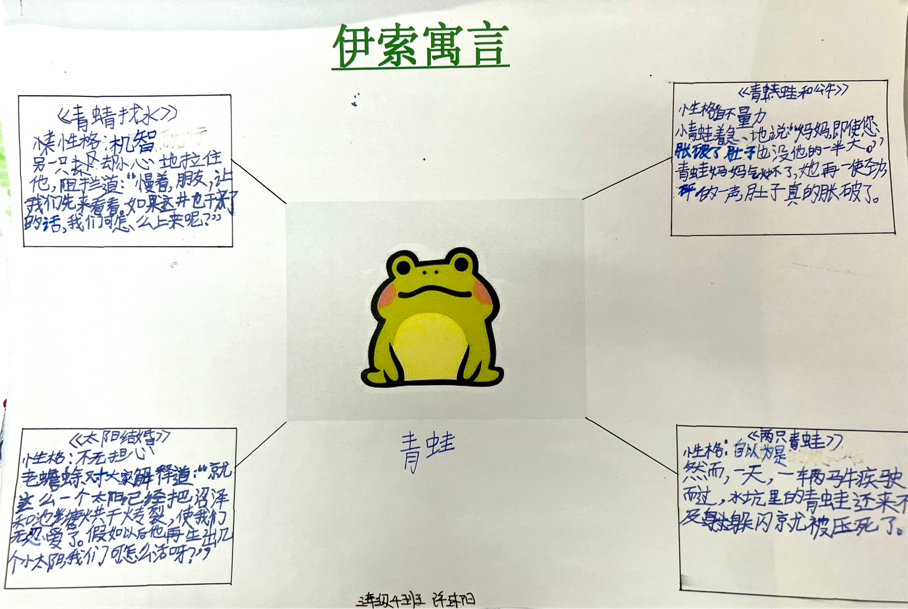 伊索寓言
《青蜻找水》
性格:机智
另一只却小心地拉住
他,阻拦道:“慢着,朋友,让
我们先来看看,如果这井也干涸了
的话,我们可怎么上来呢?”
《青蛙和公牛》
性格:自不量力
小青蛙着急地说:“妈妈,即使您
胀破了肚子也没他的一半大。”
青蛙妈妈气坏了,她再一使劲
砰的一声,肚子真的胀破了。
青蛙
《太阳结婚》
性格:不无担心
老蟾蜍对大家解释道:“就
这么一个太阳已经把沼泽
和池塘烘干烤裂,使我们
无忍受了。假如以后他再生出几
个小太阳,我们可怎么活呀?”
《两只青蛙》
性格:自以为是
然而,一天,一辆马车疾驶
而过,水坑里的青蛙还来不
及躲闪就被压死了。
三年级4班